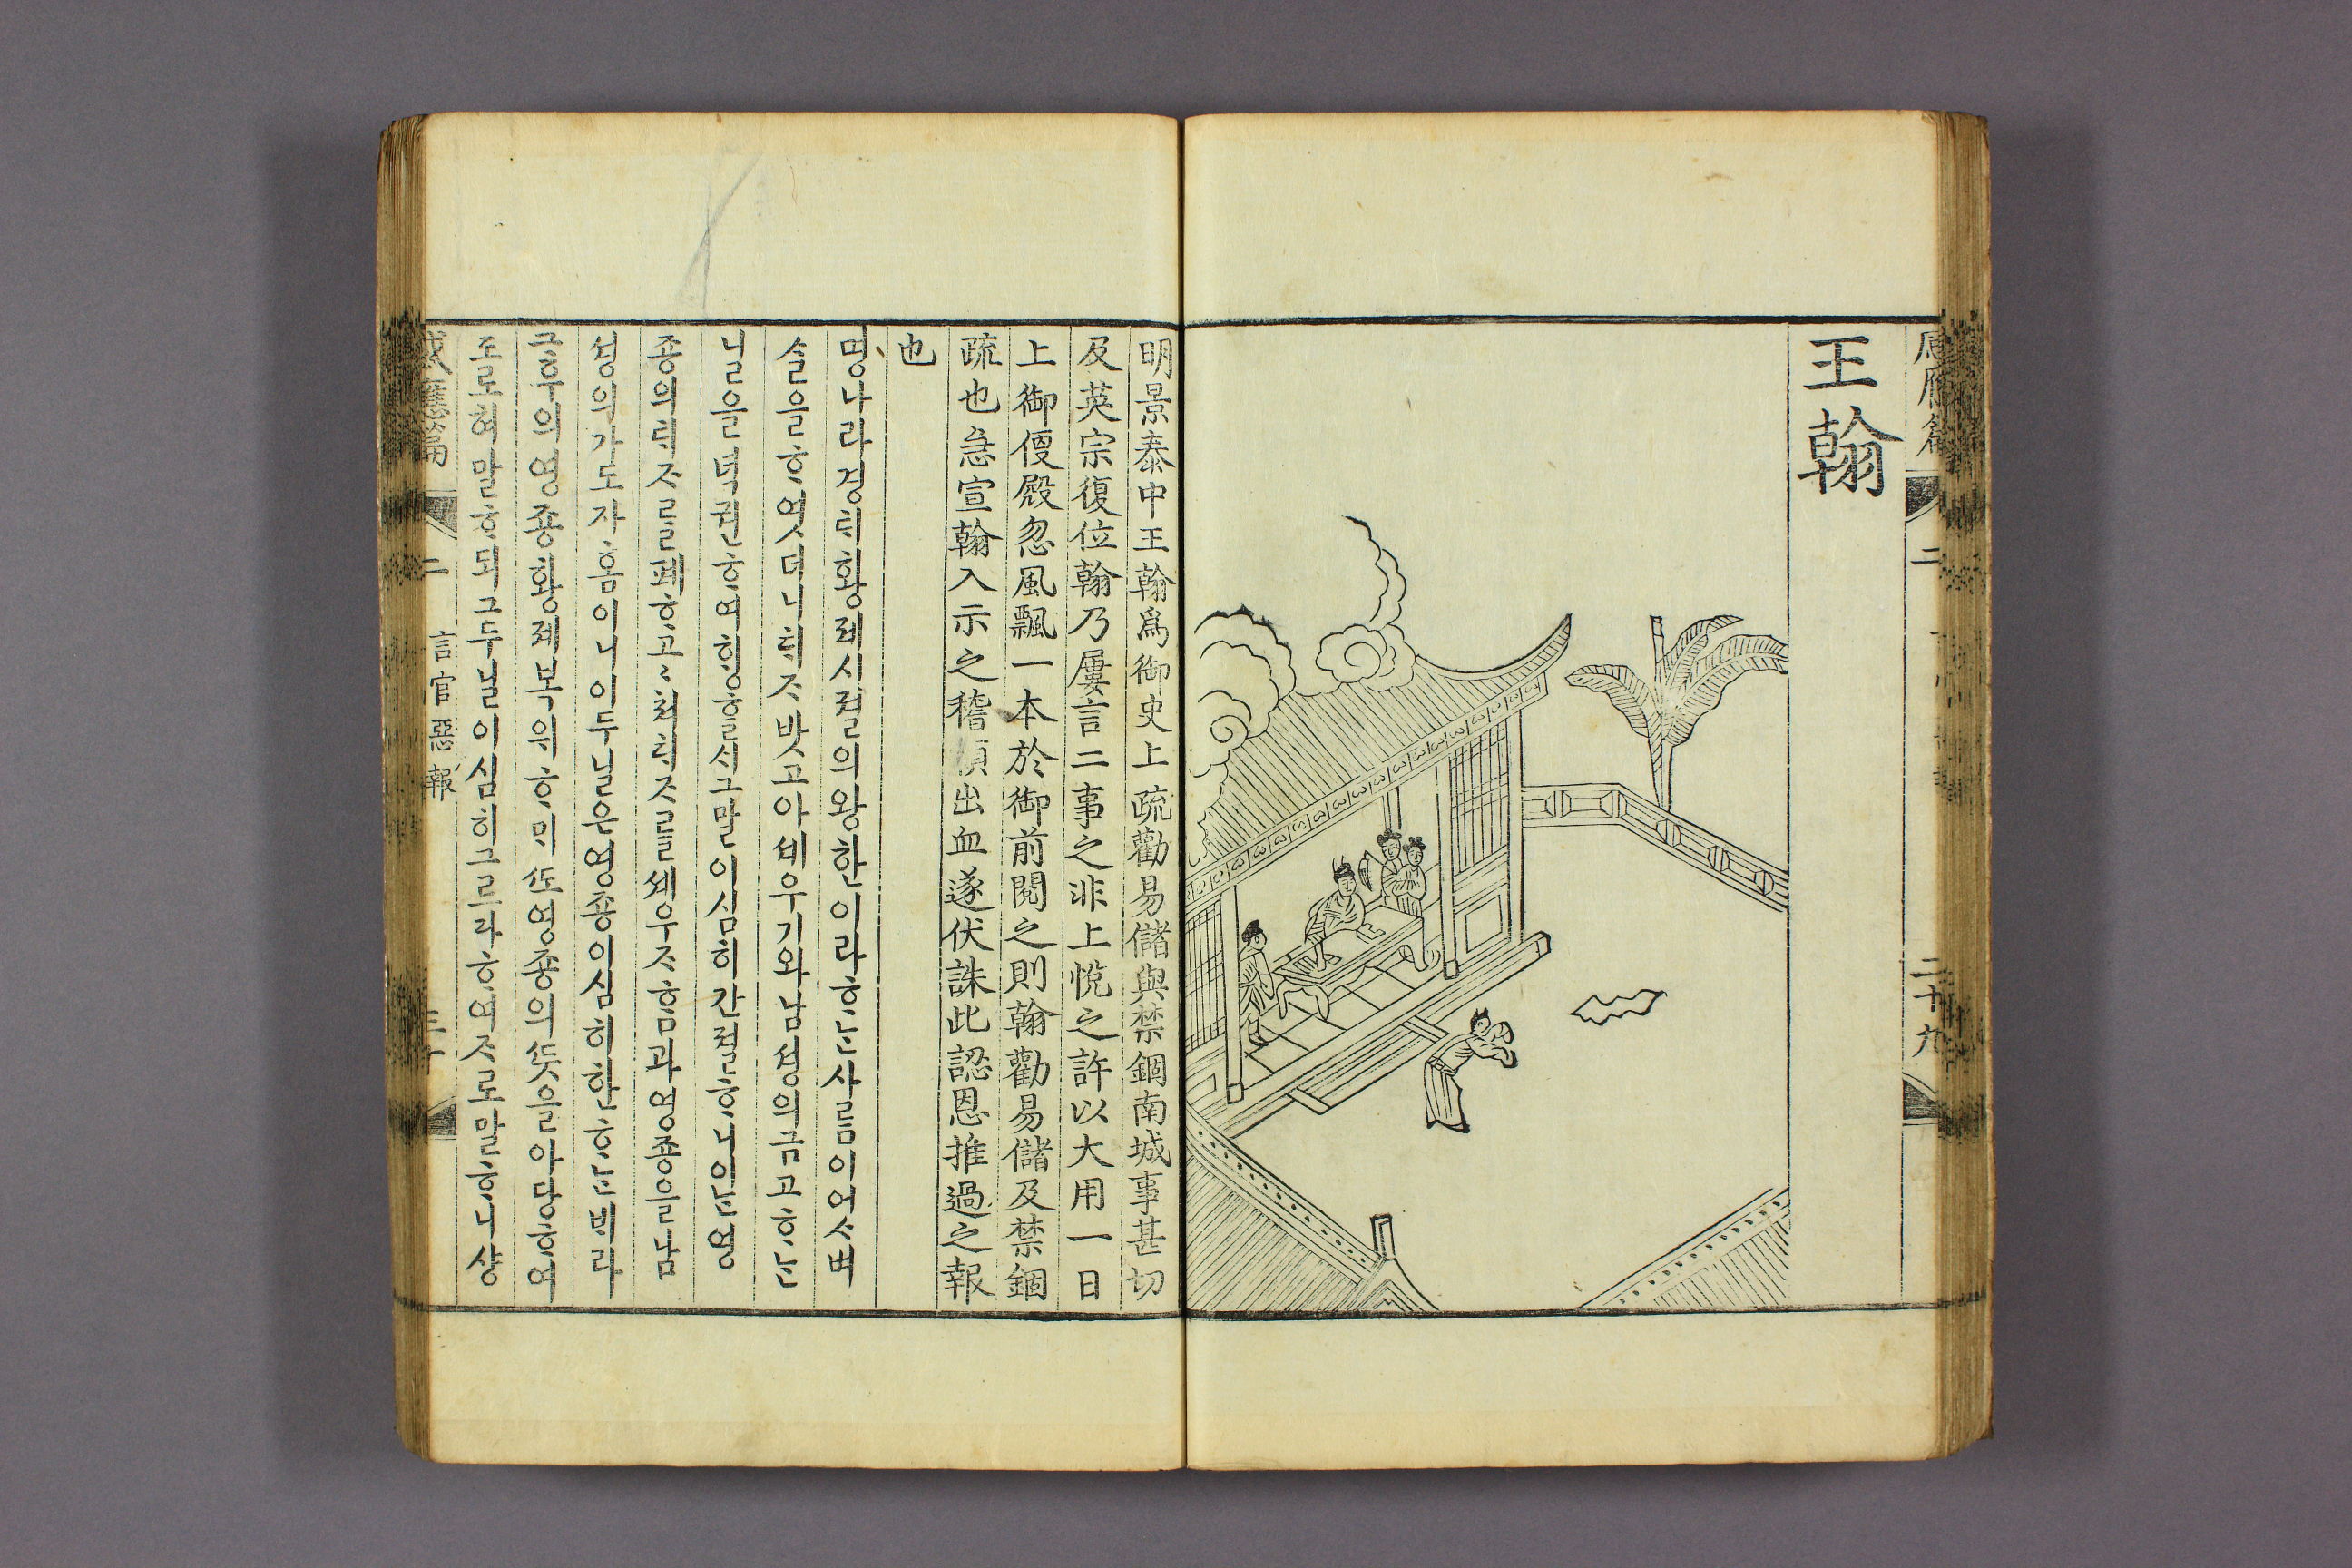 王翰
二十九
明景泰中王翰爲御史上疏勸易儲與禁錮南城事甚切
及英宗復位翰乃屢言二事之非上悅之許以大用一日
上御便殿忽風飄一本於御前閱之則翰勸易儲及禁錮
疏也急宣翰入示之稽顙出血遂伏誅此認恩推過之報
也
명나라경ᄐᆡ황뎨시졀의왕한이라ᄒᆞᄂᆞᆫ사ᄅᆞᆷ이어ᄉᆞ벼
슬을ᄒᆞ엿더니ᄐᆡᄌᆞ밧고아셰우기와남셩의금고ᄒᆞᄂᆞᆫ
닐을덕권ᄒᆞ여ᄒᆡᆼᄒᆞᆯᄉᆡ그말이심히간졀ᄒᆞ니이ᄂᆞᆫ영
죵의ᄐᆡᄌᆞᄅᆞᆯ폐ᄒᆞ고고쳐ᄐᆡᄌᆞᄅᆞᆯ셰우ᄌᆞᄒᆞᆷ과영죵을남
셩의가도쟈홈이니이두닐은영죵이심히한ᄒᆞᄂᆞᆫ배라
그후의영죵황뎨복위ᄒᆞᄆᆡ ᄯᅩ영죵의ᄯᅳᆺ을아당ᄒᆞ여
도로혀말ᄒᆞ되그두닐이심히그ᄅᆞ다ᄒᆞ여ᄌᆞ로말ᄒᆞ니샹
感應篇 二 言官惡報